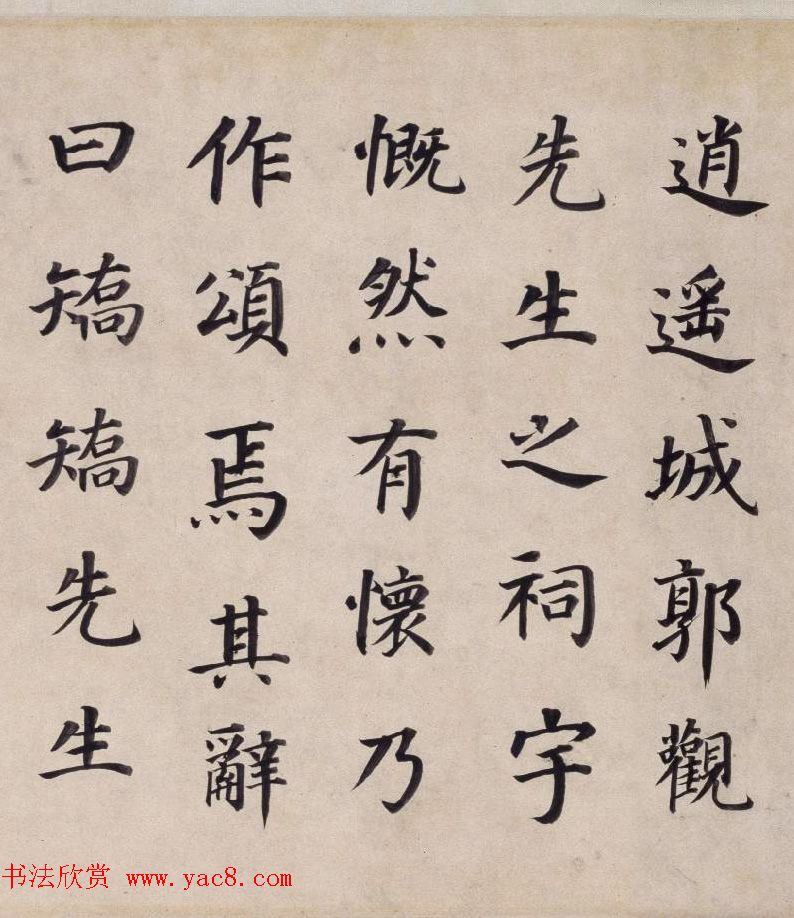 逍遥城郭觀
先生之祠宇
慨然有懷乃
作頌焉其辭
曰矯矯先生
书法欣赏 www.yac8.com